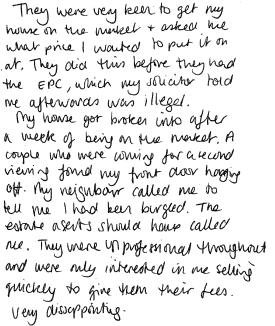 They were very keen to get my
house on the market + asked me
what price I wanted to put it on
at. They did this before they had
the EPC, which my solicitor told
me afterwards was illegal.
My house got broken into after
a week of being on the market. A
couple who were coming for a second
viewing found my front door hanging
off. My neighbour called me to
tell me I had been burgled. The
estate agents should have called
me. They were unprofessional throughout
and were only interested in me selling
quickly to give them their fees.
Very disappointing.